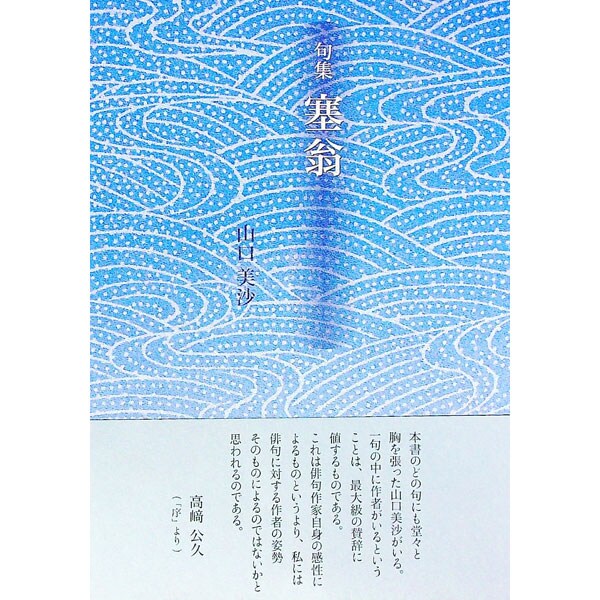 句集 塞翁
山口 美沙
本書のどの句にも堂々と
胸を張った山口美沙がいる。
一句の中に作者がいるという
ことは、最大級の賛辞に
値するものである。
これは俳句作家自身の感性に
よるものというより、私には
俳句に対する作者の姿勢
そのものによるのではないかと
思われるのである。
高﨑 公久
(「序」より)